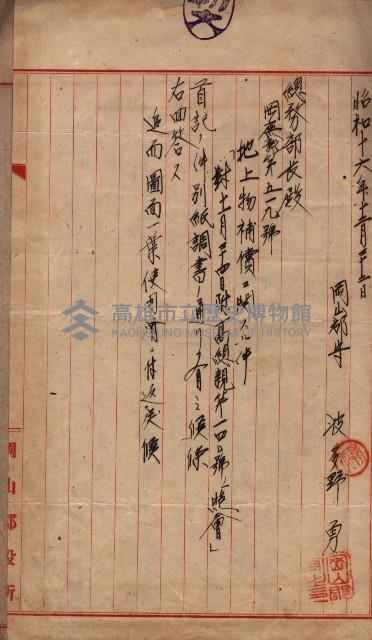 昭和十六年十二月二十二日
岡山郡守 波多野勇
總務部長殿
岡庶第五一九號
地上物補償ニ關スル件
對十一月二十四日附高總親第一四〇號照會
首記ノ件別紙調書ノ通リ有之候條
右回答ス
追而圖面一葉使用濟ニ付返戾候
岡山郡役所
高雄市立歷史博物館
KAOHSIUNG MUSEUM OF HISTORY